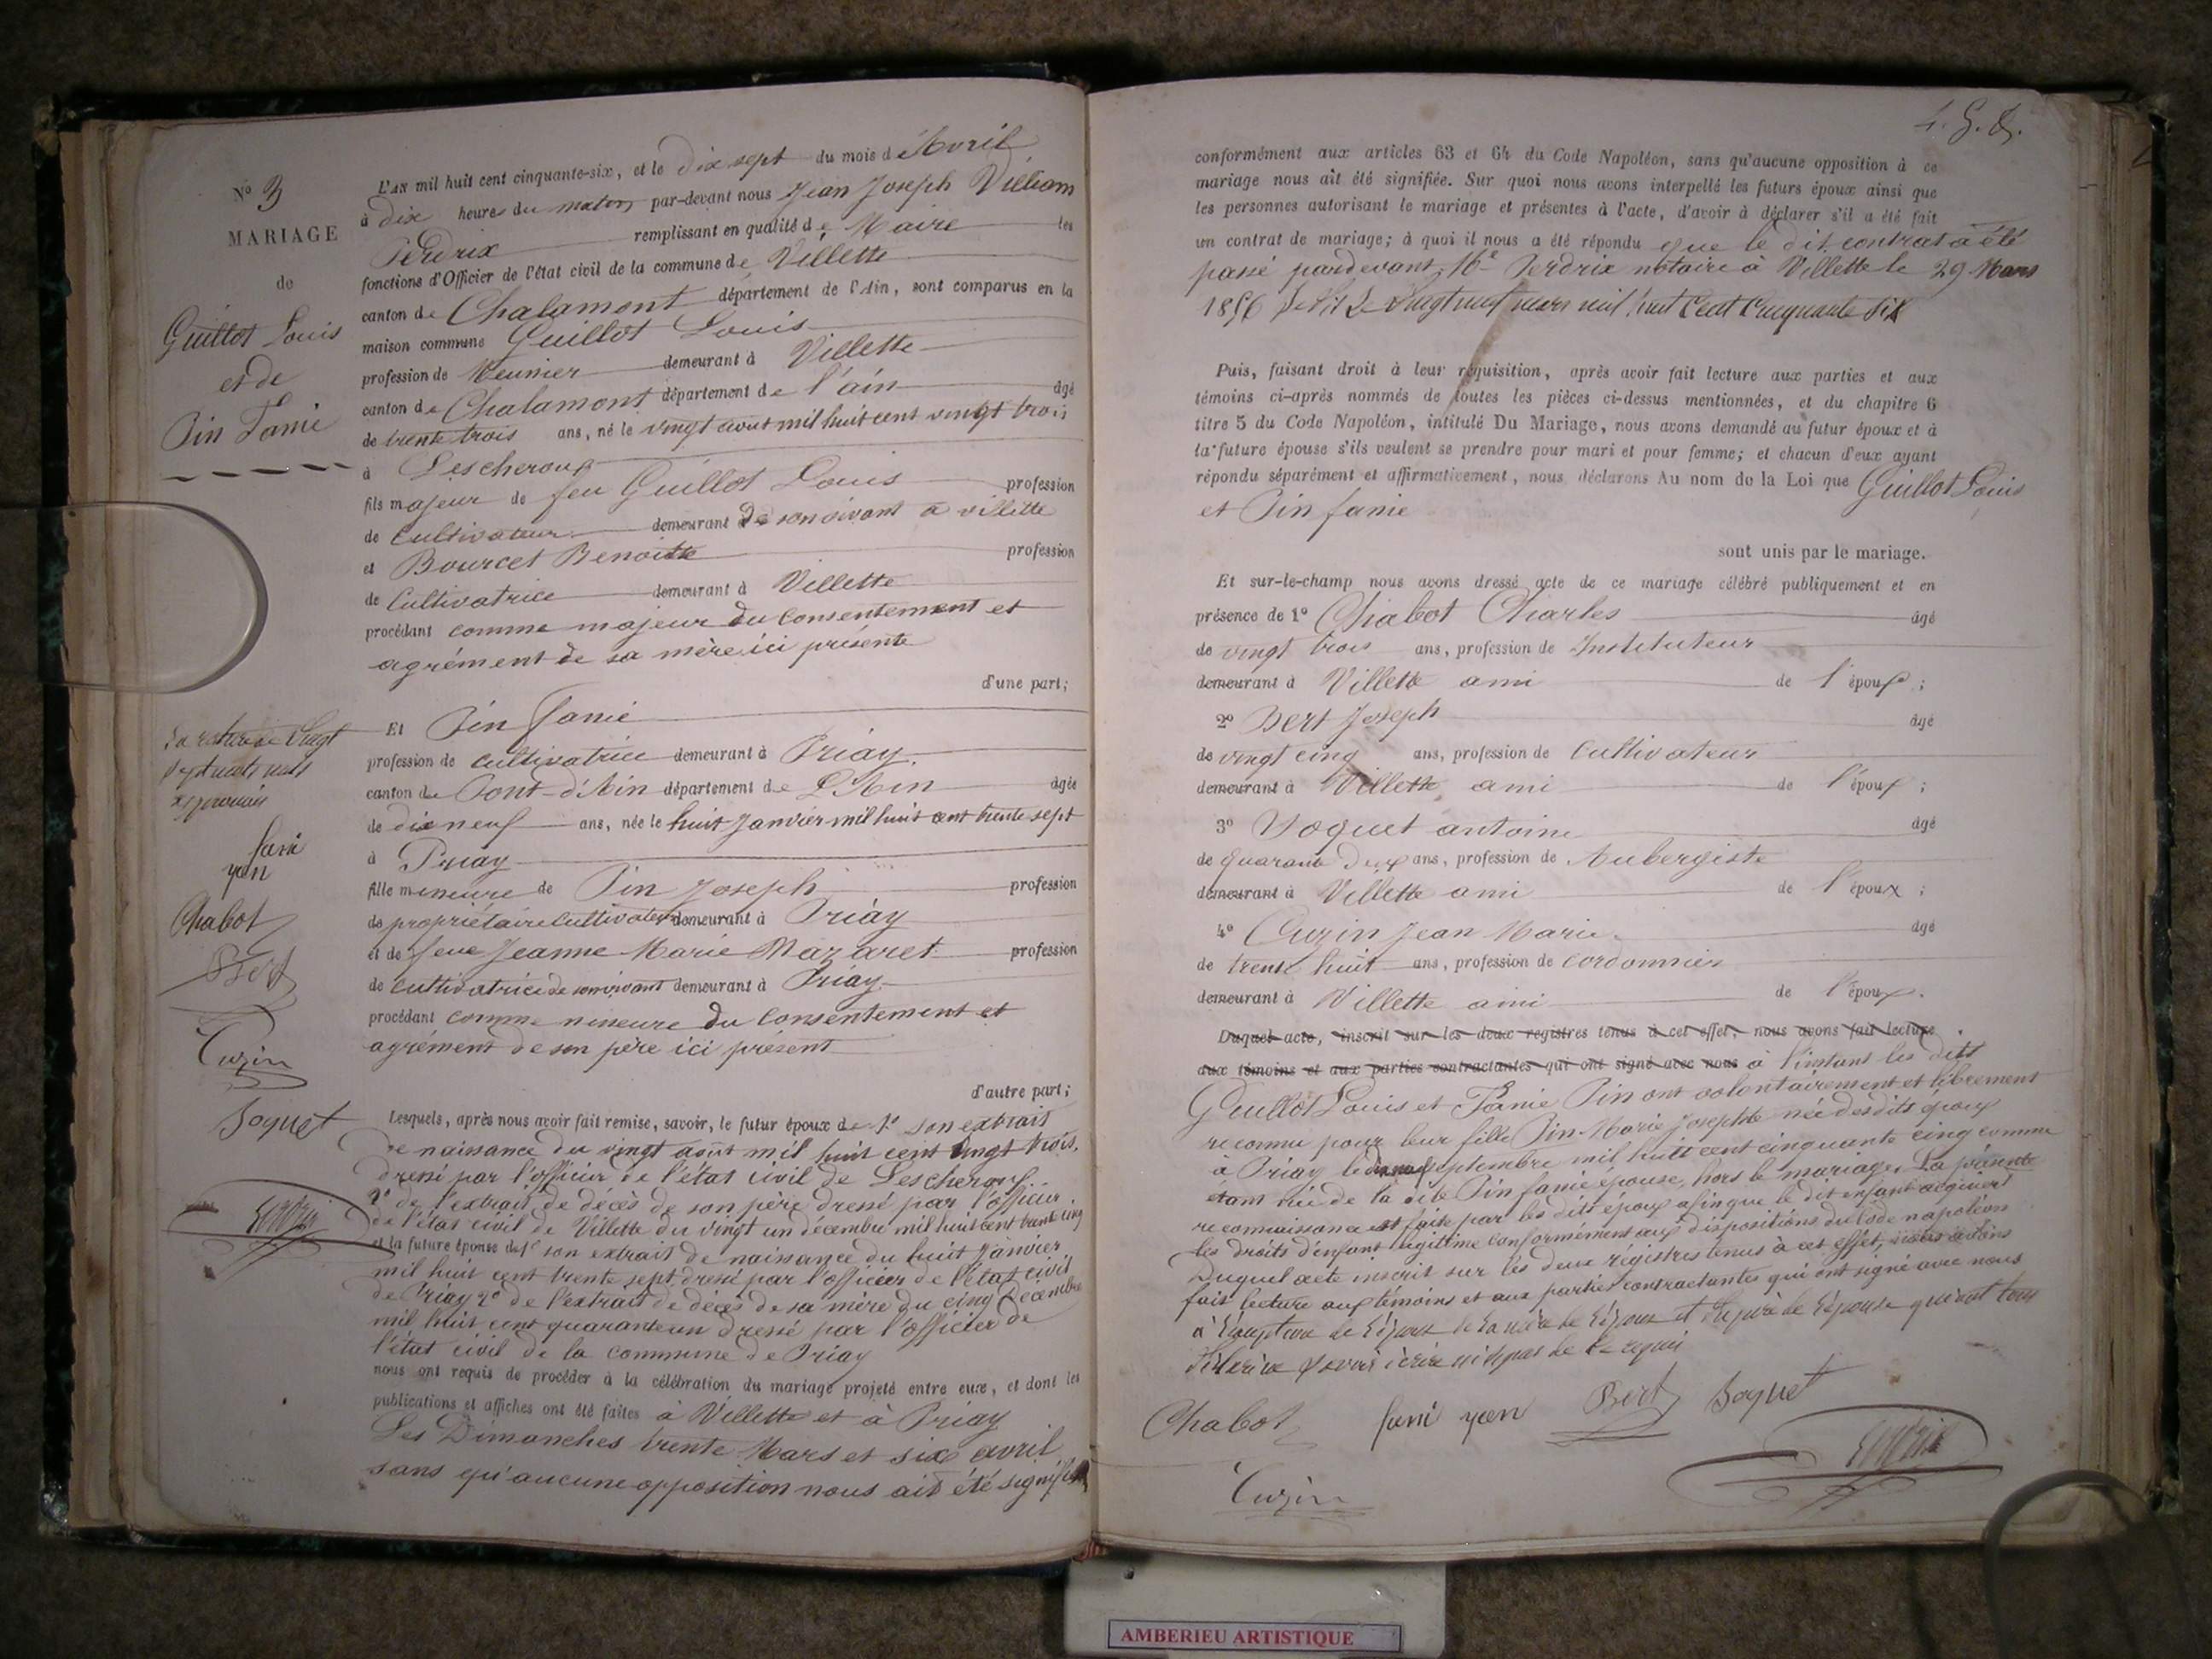 N° 3
MARIAGE
de
Guillot Louis
et de
Pin Fanie
L'AN mil huit cent cinquante-six, et le dix sept du mois d'Avril
à dix heures du matin par-devant nous Jean Joseph William
Perdrix remplissant en qualité de Maire les
fonctions d'Officier de l'état civil de la commune de Villette
canton de Chalamont département de l'Ain, sont comparus en la
maison commune Guillot Louis
profession de Meunier demeurant à Villette
canton de Chalamont département de l'ain âgé
de trente trois ans, né le vingt aout mil huit cent vingt trois
à Lescheroux
fils majeur de feu Guillot Louis profession
de Cultivateur demeurant de son vivant a villette
et Bourcet Benoitte profession
de Cultivatrice demeurant à Villette
procédant comme majeur du Consentement et
agrément de sa mère ici présente
d'une part;
Et Pin fanie
profession de cultivatrice demeurant à Priay.
canton de Pont-d'Ain département de L'Ain âgée
de dix neuf ans, née le huit Janvier mil huit cent trente sept
à Priay
fille mineure de Pin Joseph profession
de propriétaire Cultivateur demeurant à Priay
et de feue Jeanne Marie Nazaret profession
de cultivatrice de son vivant demeurant à Priay
procédant comme mineure du Consentement et
agrément de son père ici présent
d'autre part;
Lesquels, après nous avoir fait remise, savoir, le futur époux de 1° son extrait
de naissance du vingt août mil huit cent vingt trois,
dressé par l'officier de l'état civil de Lescheroux.
2° de l'extrait de décès de son père dressé par l'officier
de l'état civil de Villette du vingt un décembre mil huit cent trente cinq
et la future épouse de 1° son extrait de naissance du huit Janvier
mil huit cent trente sept dressé par l'officier de l'état civil
de Priay 2° de l'extrait de décès de sa mère du cinq Décembre
mil huit cent quarante un dressé par l'officier de
l'état civil de la commune de Priay
nous ont requis de procéder à la célébration du mariage projeté entre eux, et dont les
publications et affiches ont été faites à Villette et à Priay
Les Dimanches trente Mars et six avril
sans qu'aucune opposition nous ait été signifiée
vingt
fani
yon
Chabot
Bert
Cuzin
Soquet
conformément aux articles 63 et 64 du Code Napoléon, sans qu'aucune opposition à ce
mariage nous ait été signifiée. Sur quoi nous avons interpellé les futurs époux ainsi que
les personnes autorisant le mariage et présentes à l'acte, d'avoir à déclarer s'il a été fait
un contrat de mariage; à quoi il nous a été répondu que le dit contrat a été
passé pardevant Me Perdrix notaire à Villette le 29 Mars
1856 vingt neuf mars mil huit Cent Cinquante Six
Puis, faisant droit à leur réquisition, après avoir fait lecture aux parties et aux
témoins ci-après nommés de toutes les pièces ci-dessus mentionnées, et du chapitre 6
titre 5 du Code Napoléon, intitulé Du Mariage, nous avons demandé au futur époux et à
la future épouse s'ils veulent se prendre pour mari et pour femme; et chacun d'eux ayant
répondu séparément et affirmativement, nous déclarons Au nom de la Loi que Guillot Louis
et Pin fanie
sont unis par le mariage.
Et sur-le-champ nous avons dressé acte de ce mariage célébré publiquement et en
présence de 1° Chabot Charles âgé
de vingt trois ans, profession de Instituteur
demeurant à Villette ami de l'époux;
2° Bert Joseph âgé
de vingt cinq ans, profession de Cultivateur
demeurant à Villette ami de l'époux;
3° Soquet antoine âgé
de quarante deux ans, profession de Aubergiste
demeurant à Villette ami de l'époux;
4° Cuzin Jean Marie âgé
de trente huit ans, profession de cordonnier
demeurant à Villette ami de l'époux.
Duquel acte, inscrit sur les deux registres tenus à cet effet, nous avons fait lecture
aux témoins et aux parties contractantes qui ont signé avec nous à l'instant les dits
Guillot Louis et Fanie Pin ont volontairement et librement
reconnu pour leur fille Pin Marie Josephte née desdits époux
à Priay le septembre mil huit cent cinquante cinq comme
étant née de la dite Pin fanie épouse, hors le mariage, La présente
reconnaissance est faite par les dits époux afin que le dit enfant acquiert
les droits d'enfant légitime conformément aux dispositions du Code napoléon
Duquel acte inscrit sur les deux régistres tenus à cet effet, nous avons
fait lecture aux témoins et aux parties contractantes qui ont signé avec nous
à l'exception de l'époux de la mère de l'époux et du père de l'épouse qui ont tous
déclaré ne savoir écrire de ce requis
Chabot fani yon Bert Soquet
Cuzin
AMBERIEU ARTISTIQUE